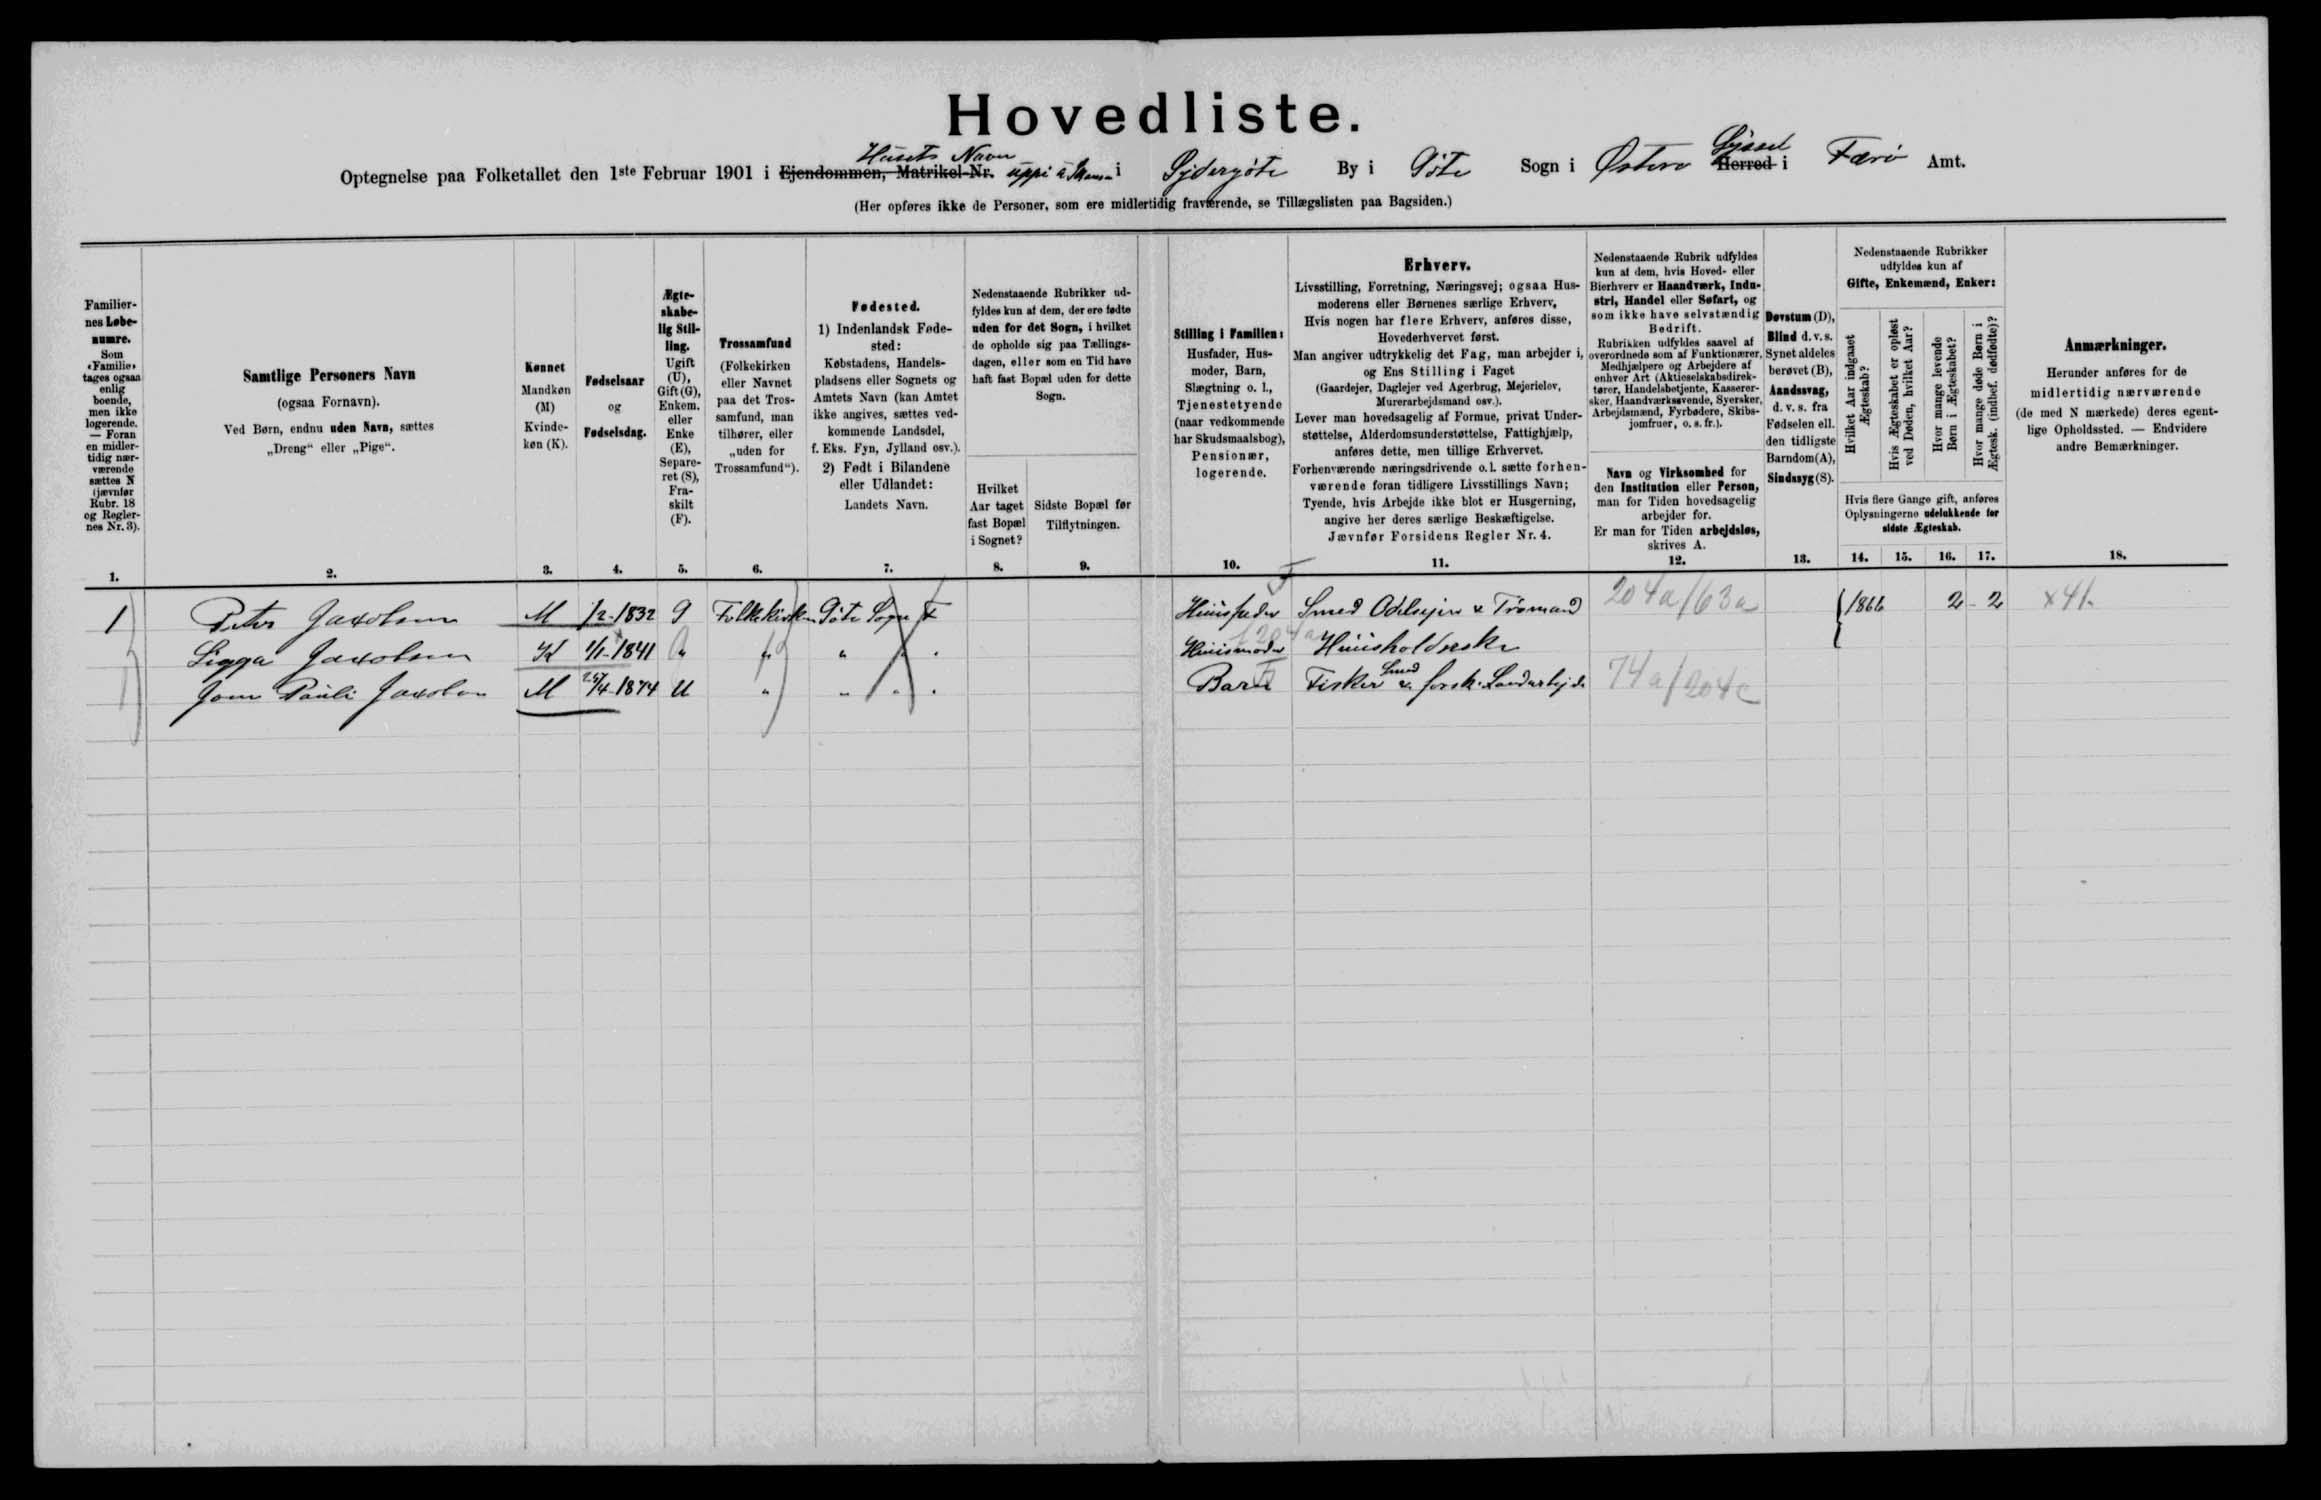 Hovedliste.
Husets Navn Syssel
Optegnelse paa Folketallet den 1ste Februar 1901 i Ejendommen, Matrikel-Nr. uppi i Sydergöte By i Göte Sogn i Østerø Herred i Færö Amt.
(Her opføres ikke de Personer, som ere midlertidig fraværende, se Tillægslisten paa Bagsiden.)
Familier-
nes Løbe-
numre.
Som
«Familie»
tages ogsaa
enlig
boende,
men ikke
logerende.
— Foran
en midler-
tidig nær-
værende
sættes N
(jævnfør
Rubr. 18
og Regler-
nes Nr. 3).
1.
Samtlige Personers Navn
(ogsaa Fornavn).
Ved Børn, endnu uden Navn, sættes
„Dreng“ eller „Pige“.
2.
Kønnet
Mandkøn
(M)
Kvinde-
køn (K).
3.
Fødselsaar
og
Fødselsdag.
4.
Ægte-
skabe-
lig Stil-
ling.
Ugift
(U),
Gift (G),
Enkem.
eller
Enke
(E),
Separe-
ret (S),
Fra-
skilt
(F).
5.
Trossamfund
(Folkekirken
eller Navnet
paa det Tros-
samfund, man
tilhører, eller
„uden for
Trossamfund“).
6.
Fødested.
1) Indenlandsk Føde-
sted:
Købstadens, Handels-
pladsens eller Sognets og
Amtets Navn (kan Amtet
ikke angives, sættes ved-
kommende Landsdel,
f. Eks. Fyn, Jylland osv.).
2) Født i Bilandene
eller Udlandet:
Landets Navn.
7.
Nedenstaaende Rubrikker ud-
fyldes kun af dem, der ere fødte
uden for det Sogn, i hvilket
de opholde sig paa Tællings-
dagen, eller som en Tid have
haft fast Bopæl uden for dette
Sogn.
Hvilket
Aar taget
fast Bopæl
i Sognet?
8.
Sidste Bopæl før
Tilflytningen.
9.
Stilling i Familien:
Husfader, Hus-
moder, Barn,
Slægtning o. l.,
Tjenestetyende
(naar vedkommende
har Skudsmaalsbog),
Pensionær,
logerende.
10.
Erhverv.
Livsstilling, Forretning, Næringsvej; ogsaa Hus-
moderens eller Børnenes særlige Erhverv.
Hvis nogen har flere Erhverv, anføres disse,
Hovederhvervet først.
Man angiver udtrykkelig det Fag, man arbejder i,
og Ens Stilling i Faget
(Gaardejer, Daglejer ved Agerbrug, Mejerielev,
Murerarbejdsmand osv.).
Lever man hovedsagelig af Formue, privat Under-
støttelse, Alderdomsunderstøttelse, Fattighjælp,
anføres dette, men tillige Erhvervet.
Forhenværende næringsdrivende o. l. sætte forhen-
værende foran tidligere Livsstillings Navn;
Tyende, hvis Arbejde ikke blot er Husgerning,
angive her deres særlige Beskæftigelse.
Jævnfør Forsidens Regler Nr. 4.
11.
Nedenstaaende Rubrik udfyldes
kun af dem, hvis Hoved- eller
Bierhverv er Haandværk, Indu-
stri, Handel eller Søfart, og
som ikke have selvstændig
Bedrift.
Rubrikken udfyldes saavel af
overordnede som af Funktionærer,
Medhjælpere og Arbejdere af
enhver Art (Aktieselskabsdirek-
tører, Handelsbetjente, Kasserer-
sker, Haandværkssvende, Syersker,
Arbejdsmænd, Fyrbødere, Skibs-
jomfruer, o. s. fr.).
Navn og Virksomhed for
den Institution eller Person,
man for Tiden hovedsagelig
arbejder for.
Er man for Tiden arbejdsløs,
skrives A.
12.
Døvstum (D),
Blind d. v. s.
Synet aldeles
berøvet (B),
Aandssvag,
d. v. s. fra
Fødselen ell.
den tidligste
Barndom (A),
Sindssyg (S).
13.
Nedenstaaende Rubrikker
udfyldes kun af
Gifte, Enkemænd, Enker:
Hvilket Aar indgaaet
Ægteskab?
Hvis Ægteskabet er opløst
ved Døden, hvilket Aar?
Hvor mange levende
Børn i Ægteskabet?
Hvor mange døde Børn i
Ægtesk. (indbef. dødfødte)?
Hvis flere Gange gift, anføres
Oplysningerne udelukkende for
sidste Ægteskab.
14. 15. 16. 17.
Anmærkninger.
Herunder anføres for de
midlertidig nærværende
(de med N mærkede) deres egent-
lige Opholdssted. — Endvidere
andre Bemærkninger.
18.
1 Peter Jacobsen M 1/2-1832 G Folkekirken Göte Sogn F Huusfader Smed Odelsejer & 204a/63a 1866 2 - 2 x 41.
Sigga Jacobsen K 1/1-1841 " " " " Huusmoder Huusholderske
Joen Pauli Jacobsen M 25/4-1874 U " " " " Barn Fisker Smed & forsk. Landarbejde 74a/204c